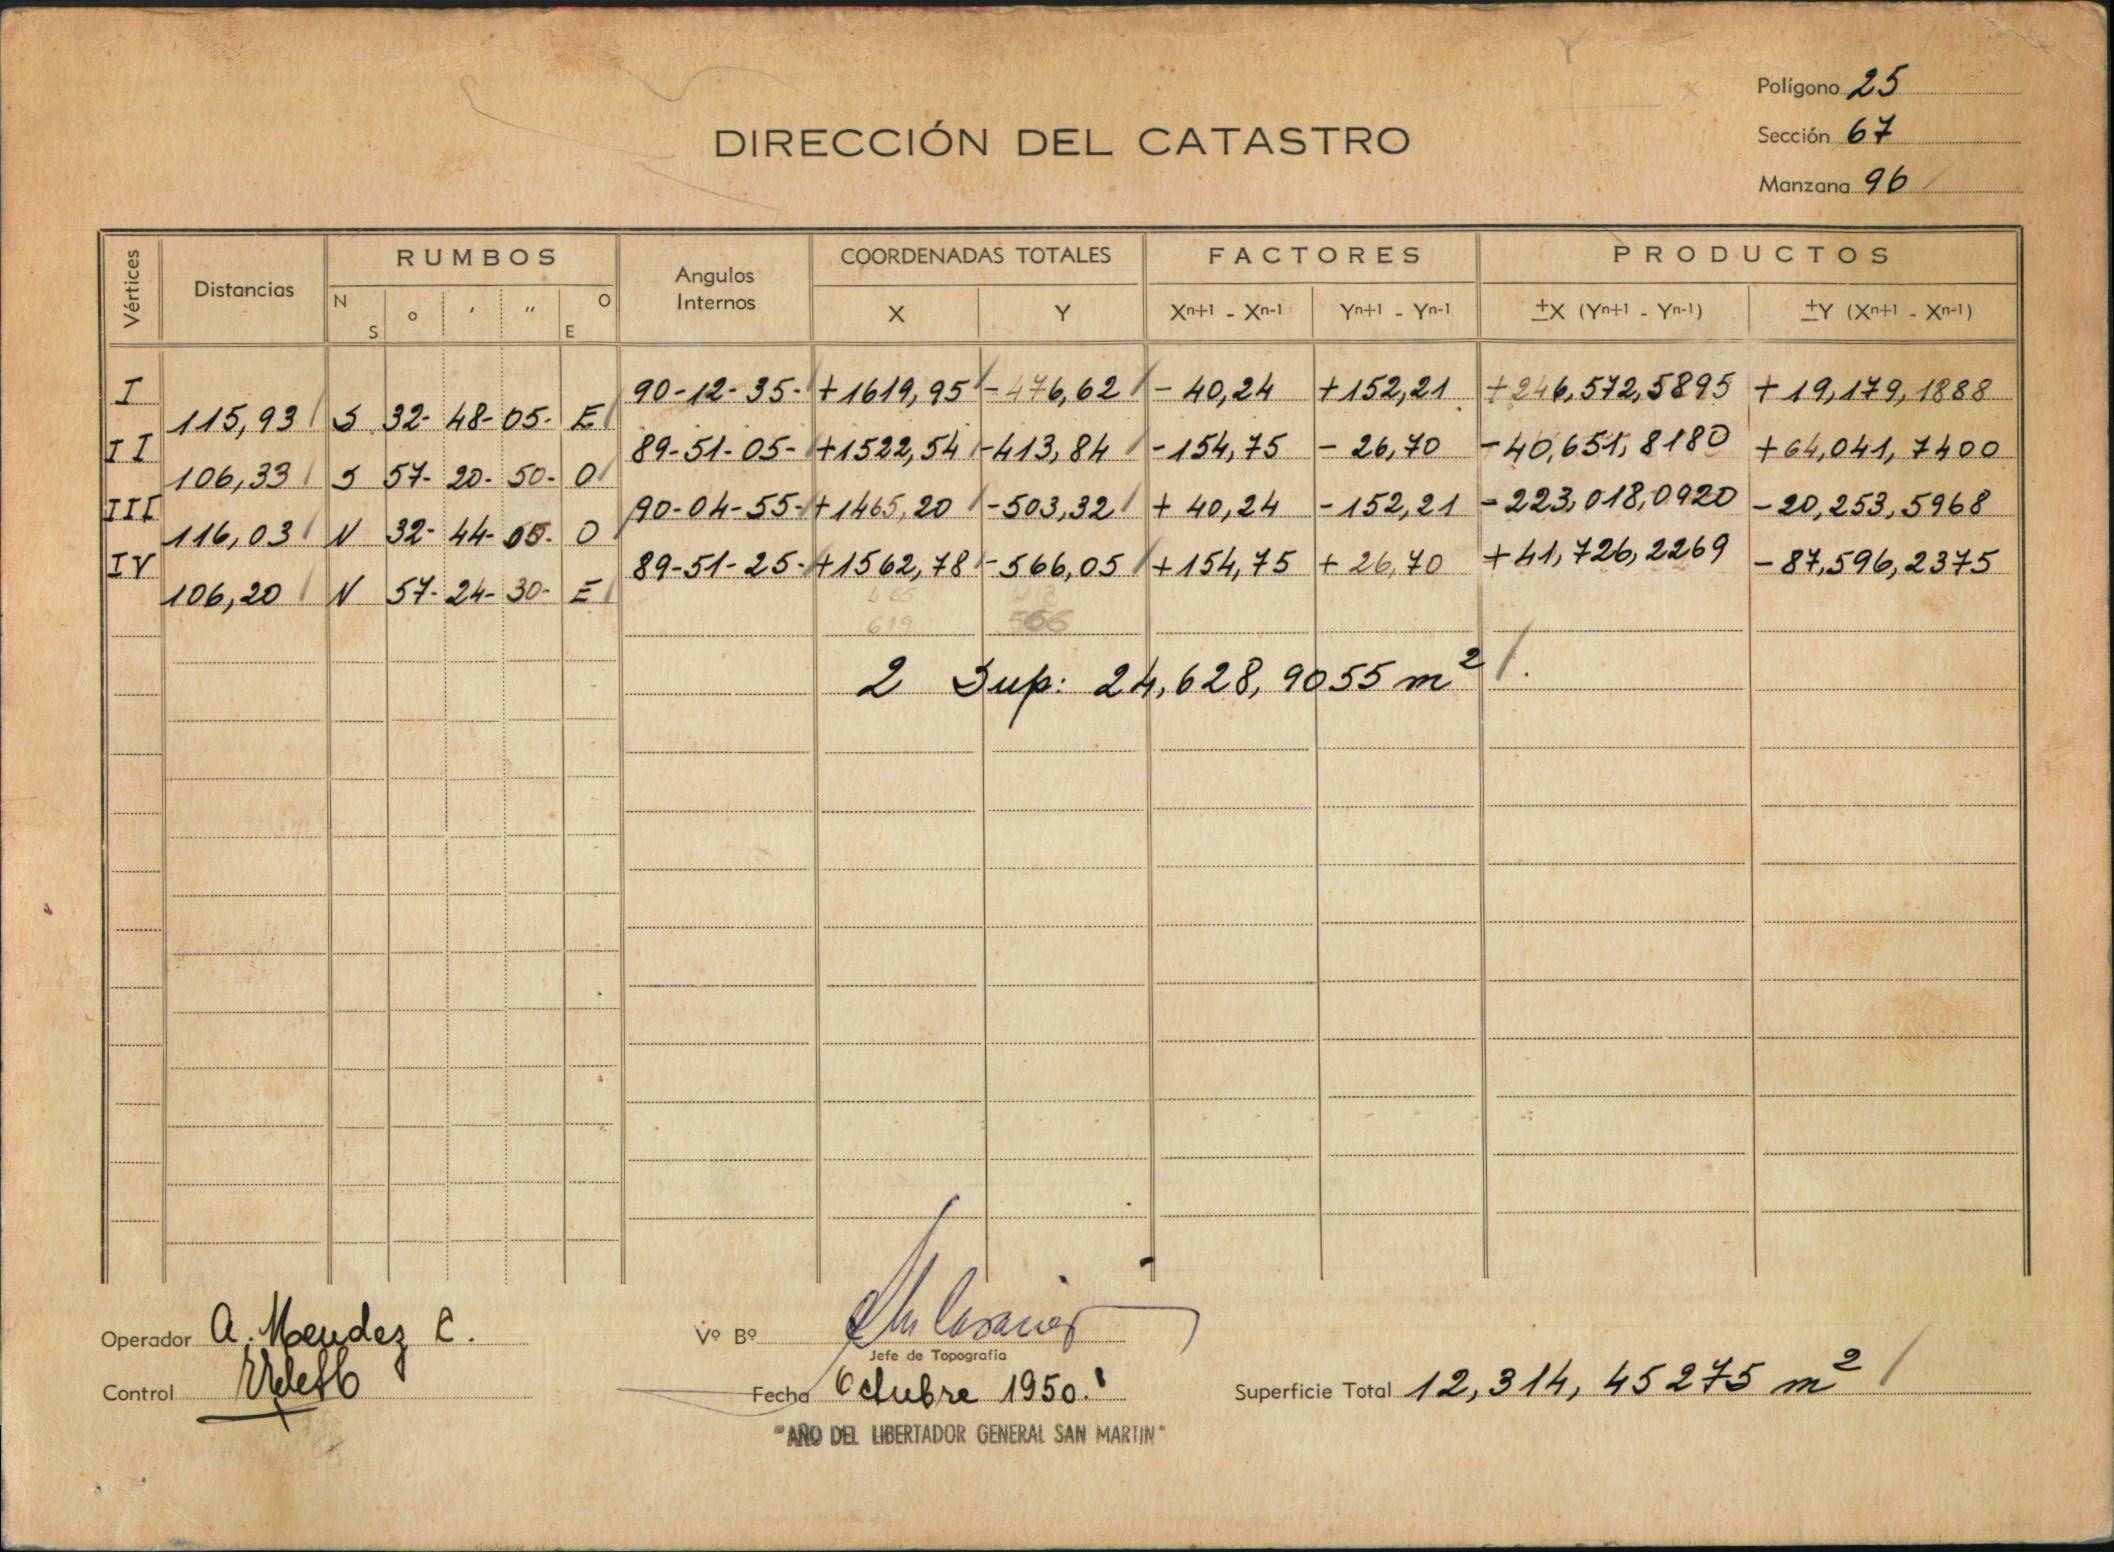 Polígono 25
Sección 67
Manzana 96
DIRECCIÓN DEL CATASTRO
Vértices Distancias RUMBOS Angulos Internos COORDENADAS TOTALES FACTORES PRODUCTOS
N S o ′ ″ O E X Y Xn+1 - Xn-1 Yn+1 - Yn-1 ±X (Yn+1 - Yn-1) ±Y (Xn+1 - Xn-1)
I 90-12-35- +1619,95 -476,62 - 40,24 +152,21 +246,572,5895 +19,179,1888
115,93 S 32- 48- 05- E
II 89-51-05- +1522,54 -413,84 -154,75 - 26,70 -40,651,8180 +64,041,7400
106,33 S 57- 20- 50- O
III 90-04-55- +1465,20 -503,32 + 40,24 -152,21 -223,018,0920 -20,253,5968
116,03 N 32- 44- 05- O
IV 89-51-25- +1562,78 -566,05 +154,75 + 26,70 +41,726,2269 -87,596,2375
106,20 N 57- 24- 30- E
619 566
2 Sup: 24,628,9055 m²
Operador A. Mendez C.
Control
Vº Bº
Jefe de Topografía
Fecha Octubre 1950.
Superficie Total 12,314,45275 m²
"AÑO DEL LIBERTADOR GENERAL SAN MARTIN"